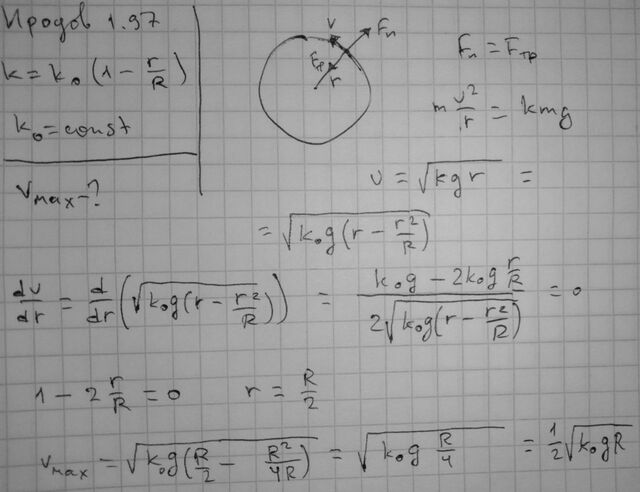 Иродов 1.97
k = k₀(1 - r/R)
k₀ = const
v_max - ?
v
Fп
Fтр
r
Fп = Fтр
m v²/r = kmg
v = √(kgr) =
= √(k₀g(r - r²/R))
dv/dr = d/dr(√(k₀g(r - r²/R))) = (k₀g - 2k₀g r/R)/(2√(k₀g(r - r²/R))) = 0
1 - 2 r/R = 0 r = R/2
v_max = √(k₀g(R/2 - R²/4R)) = √(k₀g R/4) = 1/2 √(k₀gR)